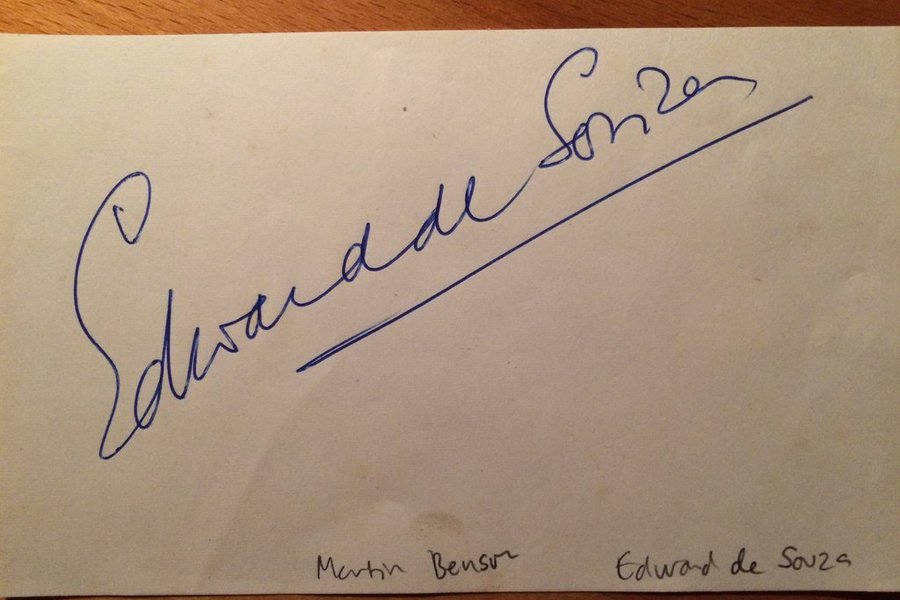 Edward de Souza
Martin Benson Edward de Souza